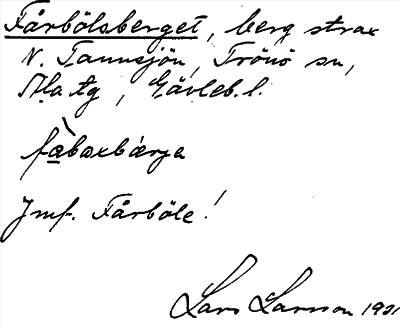 Fårbölsberget, berg strax
N. Tannsjön, Trönö sn,
Ala tg, Gävleb. l.
fæ̀baxbærja
Jmf. Fårböle!
Lars Larsson 1921